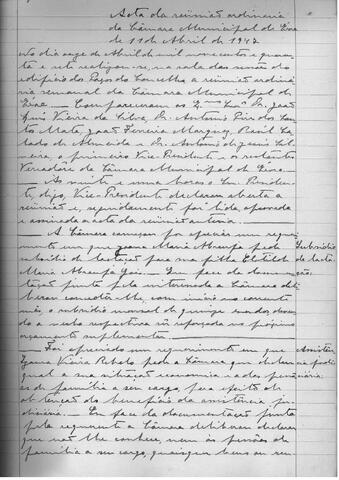 Acta da reünião ordinaria
da Câmara Municipal de
de 11 de Abril de 1947
dia onze de Abril de mil novecentos e quaren
ta e sete realizou-se, na sala das sessões do
edificio dos Paços do Concelho a reünião ordiná
ria semanal da Câmara Municipal de
Compareceram os Dr. João
Luis Vieira da Silva, Dr. António Pires dos San
tos Mota, João Ferreira Marques, Raúl Ca
lado de Almeida e Dr. António de Jesus Sil
veira, o primeiro Vice-Presidente e os restantes
Vereadores da Câmara Municipal de
As vinte e uma horas o Ex. Presiden
te, digo, Vice-Presidente declarou aberta a
reünião e, seguidamente foi lida, aprovada
e assinada a acta da reünião anterior.
A Câmara começou por apreciar um reque
rimento em que Joana Maria pede Subsidio
subsidio de lactação para sua filha Clotilde de lacta
Maria Em face da documen ção
tação junta pela interessada a Câmara deli
berou conceder-lhe, com inicio no corrente
mês, o subsidio mensal de quinze escudos, deven
do a verba respectiva ser reforçada no próximo
orçamento suplementar.
Foi apreciado um requerimento em que Assistên
Vieira pede à Câmara que declare judi
qual a sua situação economica e a das pes ciária
soas de familia a seu cargo, para efeito de
obtenção do beneficio da assistencia ju
diciária. Em face da documentação junta
pelo requerente a Câmara deliberou declarar
que não lhe conhece, nem às pessoas de
familia a seu cargo, quaisquer bens ou ren